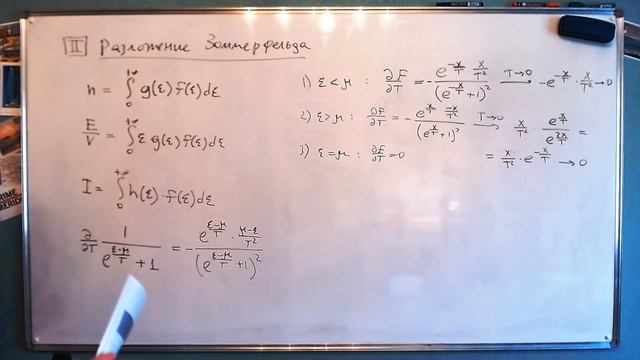 II Разложение Зоммерфельда
n = ∫₀^{+∞} g(ε) f(ε) dε
E/V = ∫₀^{+∞} ε g(ε) f(ε) dε
I = ∫₀^{+∞} h(ε) · f(ε) dε
∂/∂T 1/(e^{(ε-μ)/T} + 1) = - (e^{(ε-μ)/T} · (μ-ε)/T²)/(e^{(ε-μ)/T} + 1)²
1) ε < μ : ∂f/∂T = - (e^{-x/T} x/T²)/(e^{-x/T} + 1)² →^{T→0} -e^{-x/T} · x/T² → 0
2) ε > μ : ∂f/∂T = - (e^{x/T} · -x/T²)/(e^{x/T} + 1)² →^{T→0} x/T² · e^{x/T}/e^{2x/T} =
= x/T² · e^{-x/T} → 0
3) ε = μ : ∂f/∂T = 0